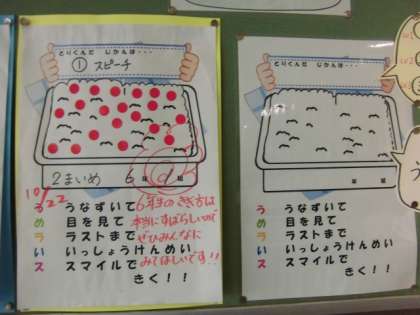 とりくんだ じかんは・・・
① スピーチ
2まいめ 6年 組
10/22
う うなずいて
め 目を見て
ラ ラストまで
い いっしょうけんめい
ス スマイルで
きく！！
6年生のきき方は
本当にすばらしいので
ぜひみんなに
みてほしいです!!
とりくんだ じかんは・・・
年 組
う うなずいて
め 目を見て
ラ ラストまで
い いっしょうけんめい
ス スマイルで
きく！！
う